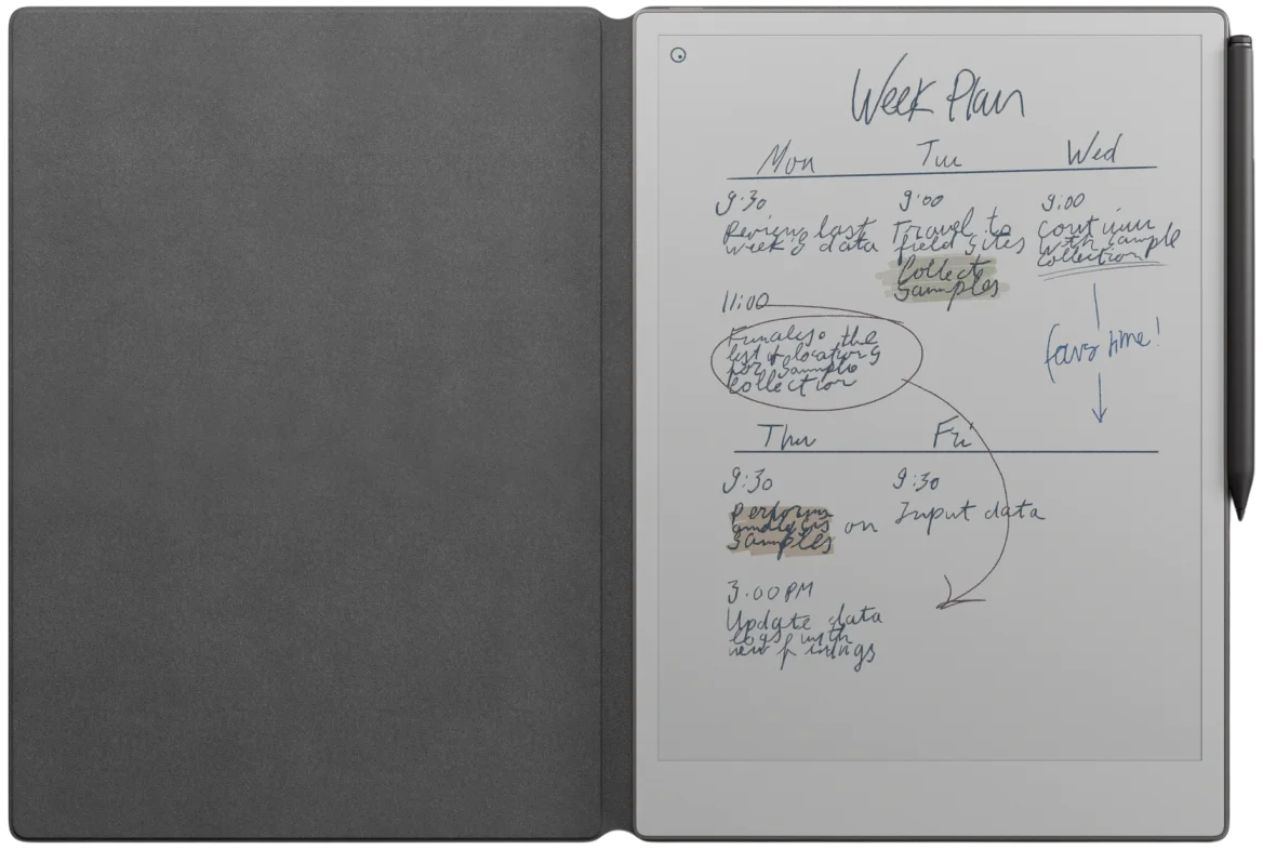 Week Plan
Mon Tue Wed
9:30
Review last
week's data
11:00
Finalise the
list of locations
for sample
collection
9:00
Travel to
field sites
Collect
samples
9:00
Continue
with sample
collection
favs time!
Thu Fri
9:30
Perform
analysis on
samples
3.00 PM
Update data
logs with
new findings
9:30
Input data